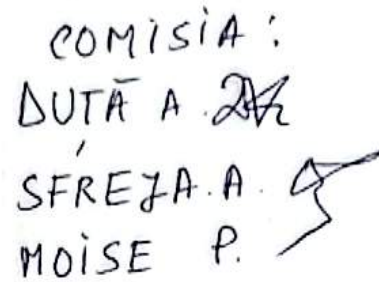 COMISIA:
DUTĂ A.
SFREJA. A.
MOISE P.